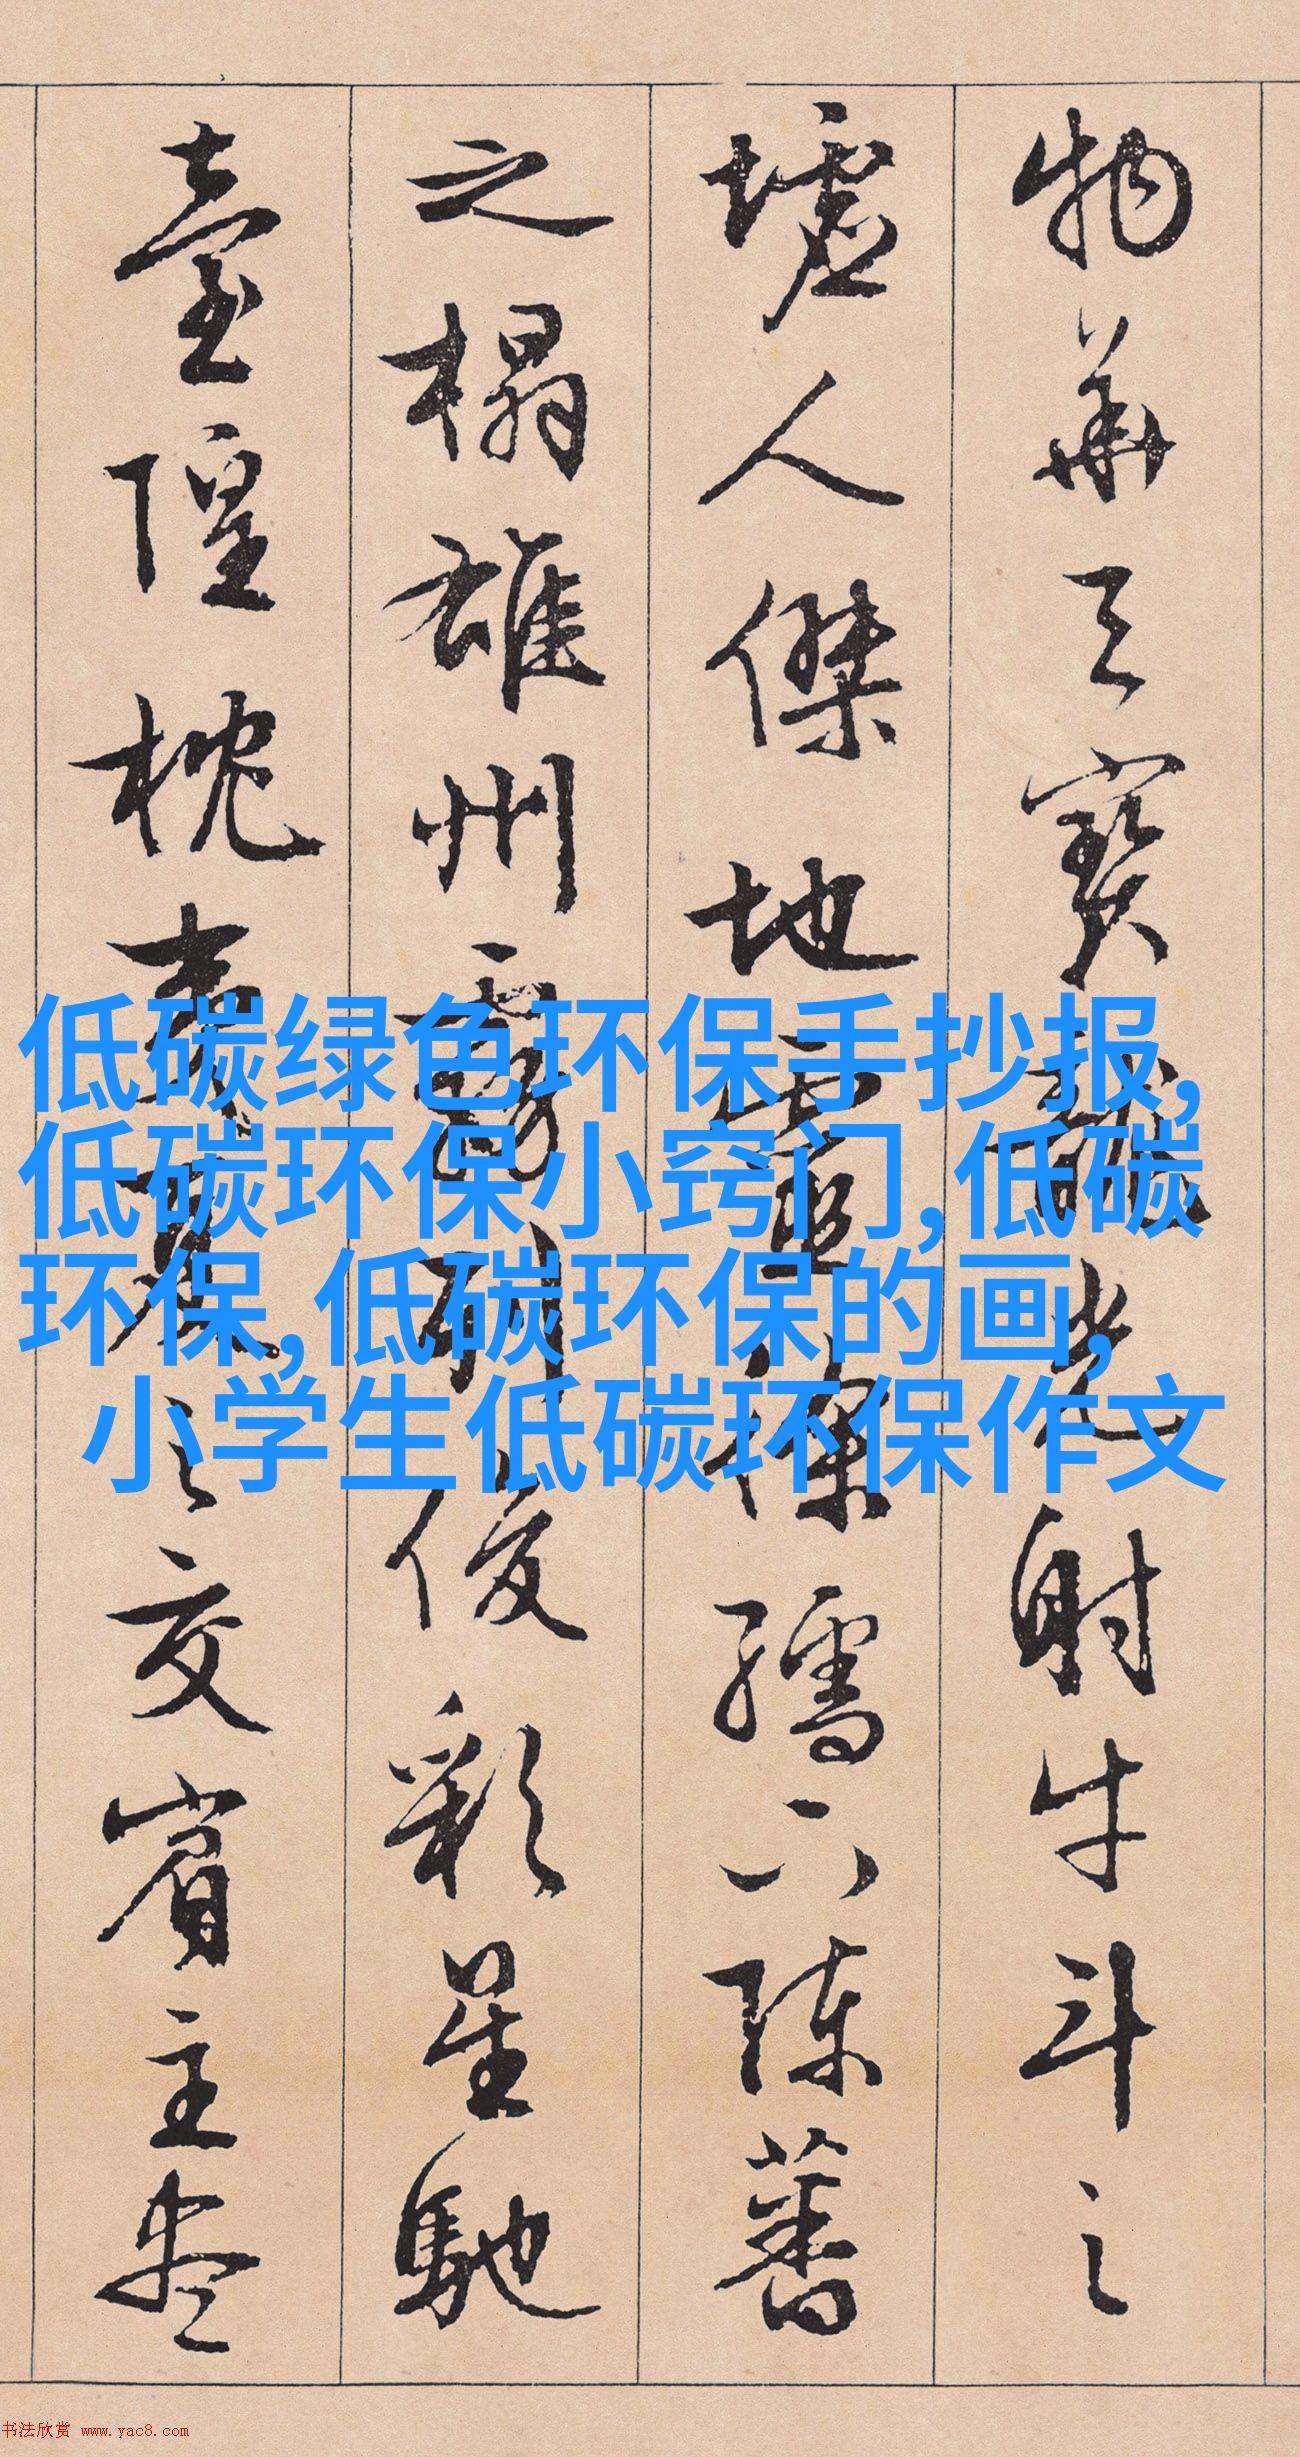 物華天寶龍光射牛斗之
墟人傑地靈徐孺下陳蕃
之榻雄州霧列俊彩星馳
臺隍枕夷夏之交賓主盡
低碳绿色环保手抄报,
低碳环保小窍门,低碳
环保,低碳环保的画,
小学生低碳环保作文
书法欣赏 www.yac8.com